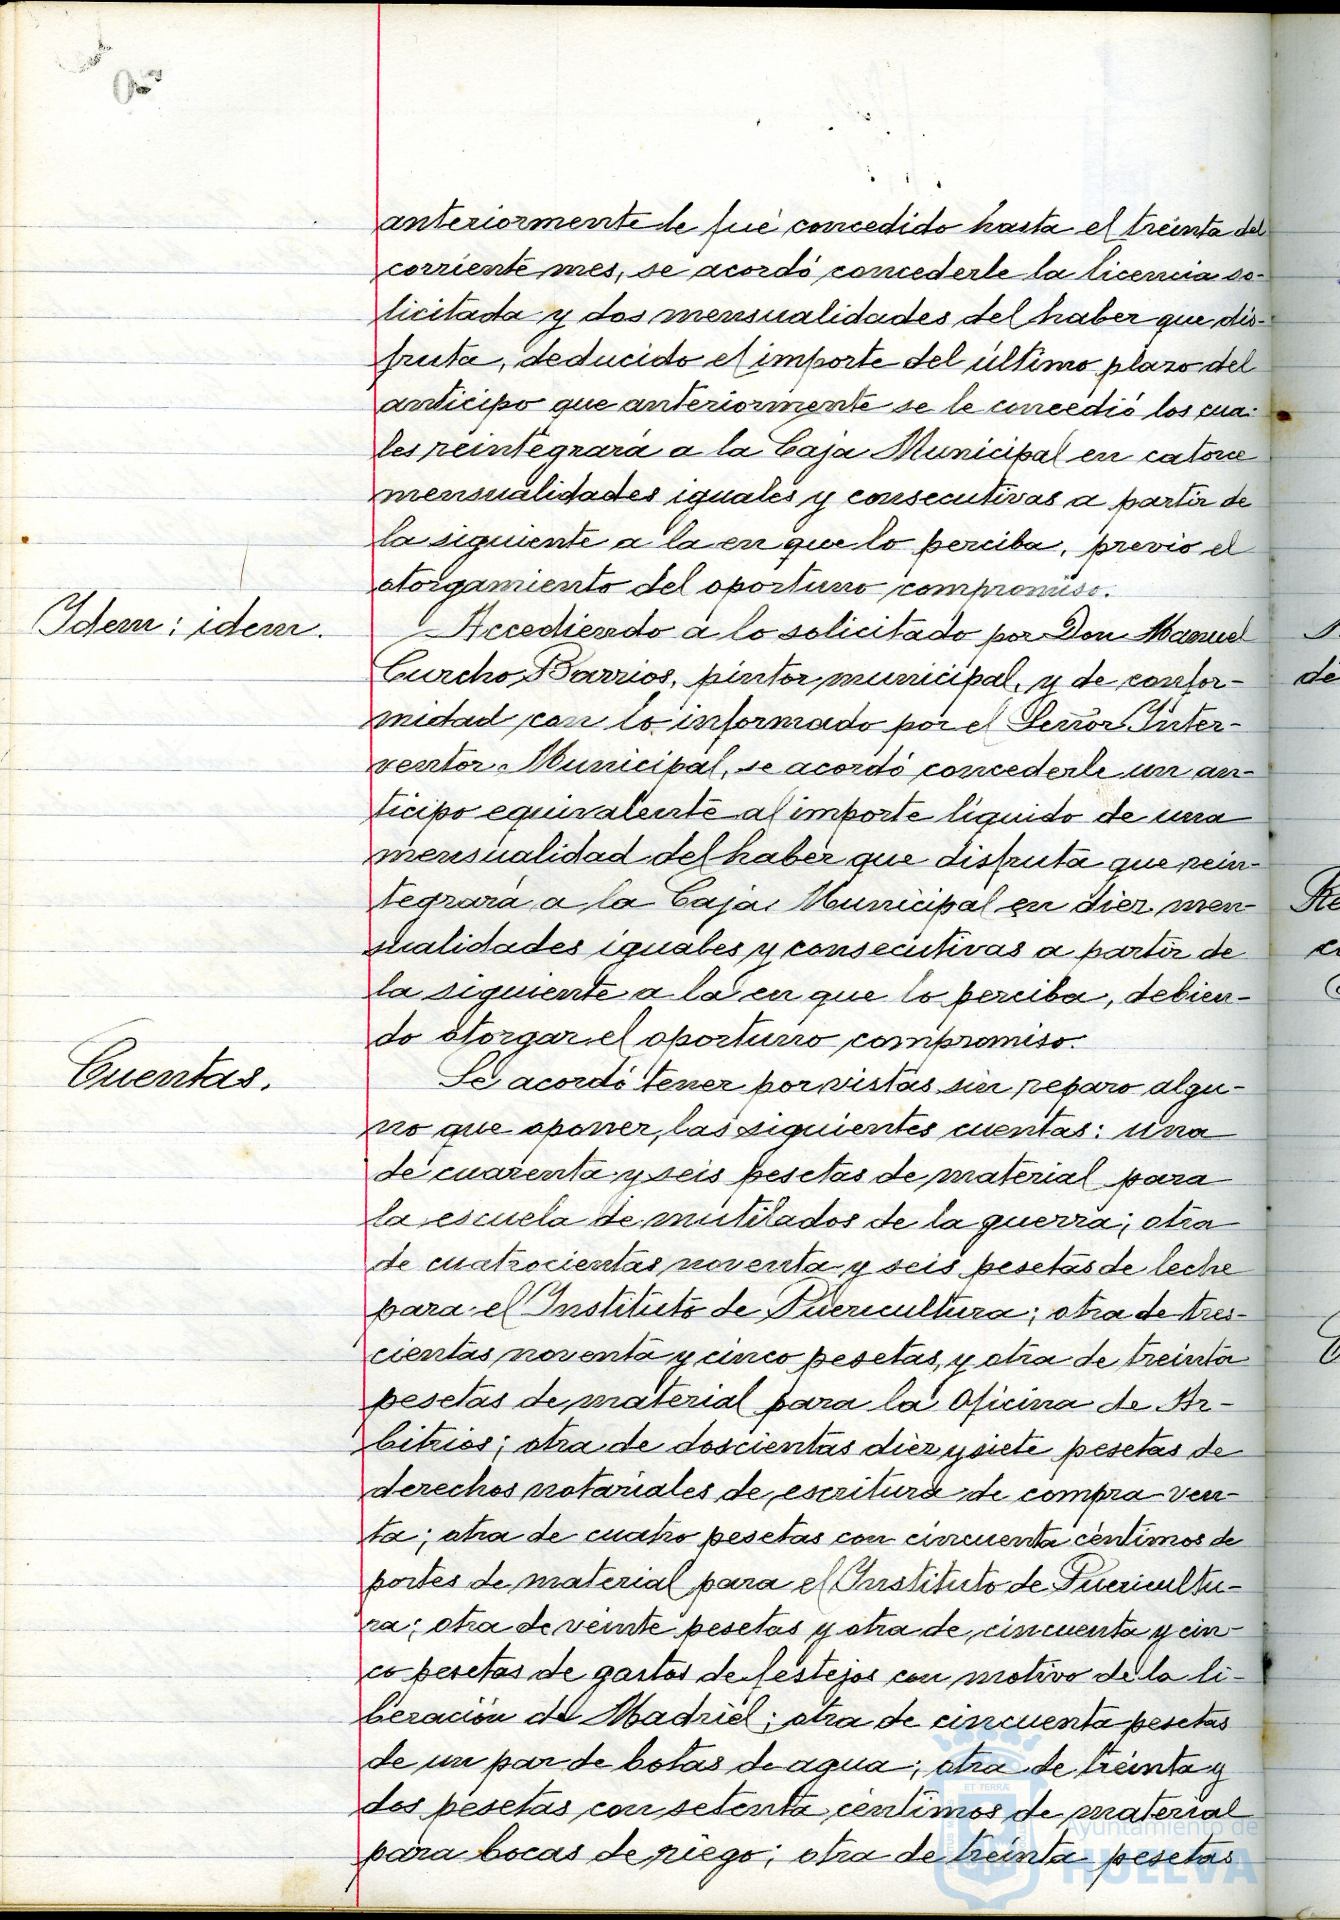 anteriormente le fué concedido hasta el treinta del
corriente mes, se acordó concederle la licencia so-
licitada y dos mensualidades del haber que dis-
fruta, deducido el importe del último plazo del
anticipo que anteriormente se le concedió los cua-
les reintegrará a la Caja Municipal en catorce
mensualidades iguales y consecutivas a partir de
la siguiente a la en que lo perciba, previo el
otorgamiento del oportuno compromiso.
Idem: idem.
Accediendo a lo solicitado por Don Manuel
Curcho Barrios, pintor municipal, y de confor-
midad con lo informado por el Señor Inter-
ventor Municipal, se acordó concederle un an-
ticipo equivalente al importe líquido de una
mensualidad del haber que disfruta que rein-
tegrará a la Caja Municipal en diez men-
sualidades iguales y consecutivas a partir de
la siguiente a la en que lo perciba, debien-
do otorgar el oportuno compromiso.
Cuentas.
Se acordó tener por vistas sin reparo algu-
no que oponer, las siguientes cuentas: una
de cuarenta y seis pesetas de material para
la escuela de mutilados de la guerra; otra
de cuatrocientas noventa y seis pesetas de leche
para el Instituto de Puericultura; otra de tres-
cientas noventa y cinco pesetas, y otra de treinta
pesetas de material para la Oficina de Ar-
bitrios; otra de doscientas diez y siete pesetas de
derechos notariales de escritura de compra-ven-
ta; otra de cuatro pesetas con cincuenta céntimos de
portes de material para el Instituto de Puericultu-
ra; otra de veinte pesetas y otra de cincuenta y cin-
co pesetas de gastos de festejos con motivo de la li-
beración de Madrid; otra de cincuenta pesetas
de un par de botas de agua; otra de treinta y
dos pesetas con setenta céntimos de material
para bocas de riego; otra de treinta pesetas
Ayuntamiento de
HUELVA